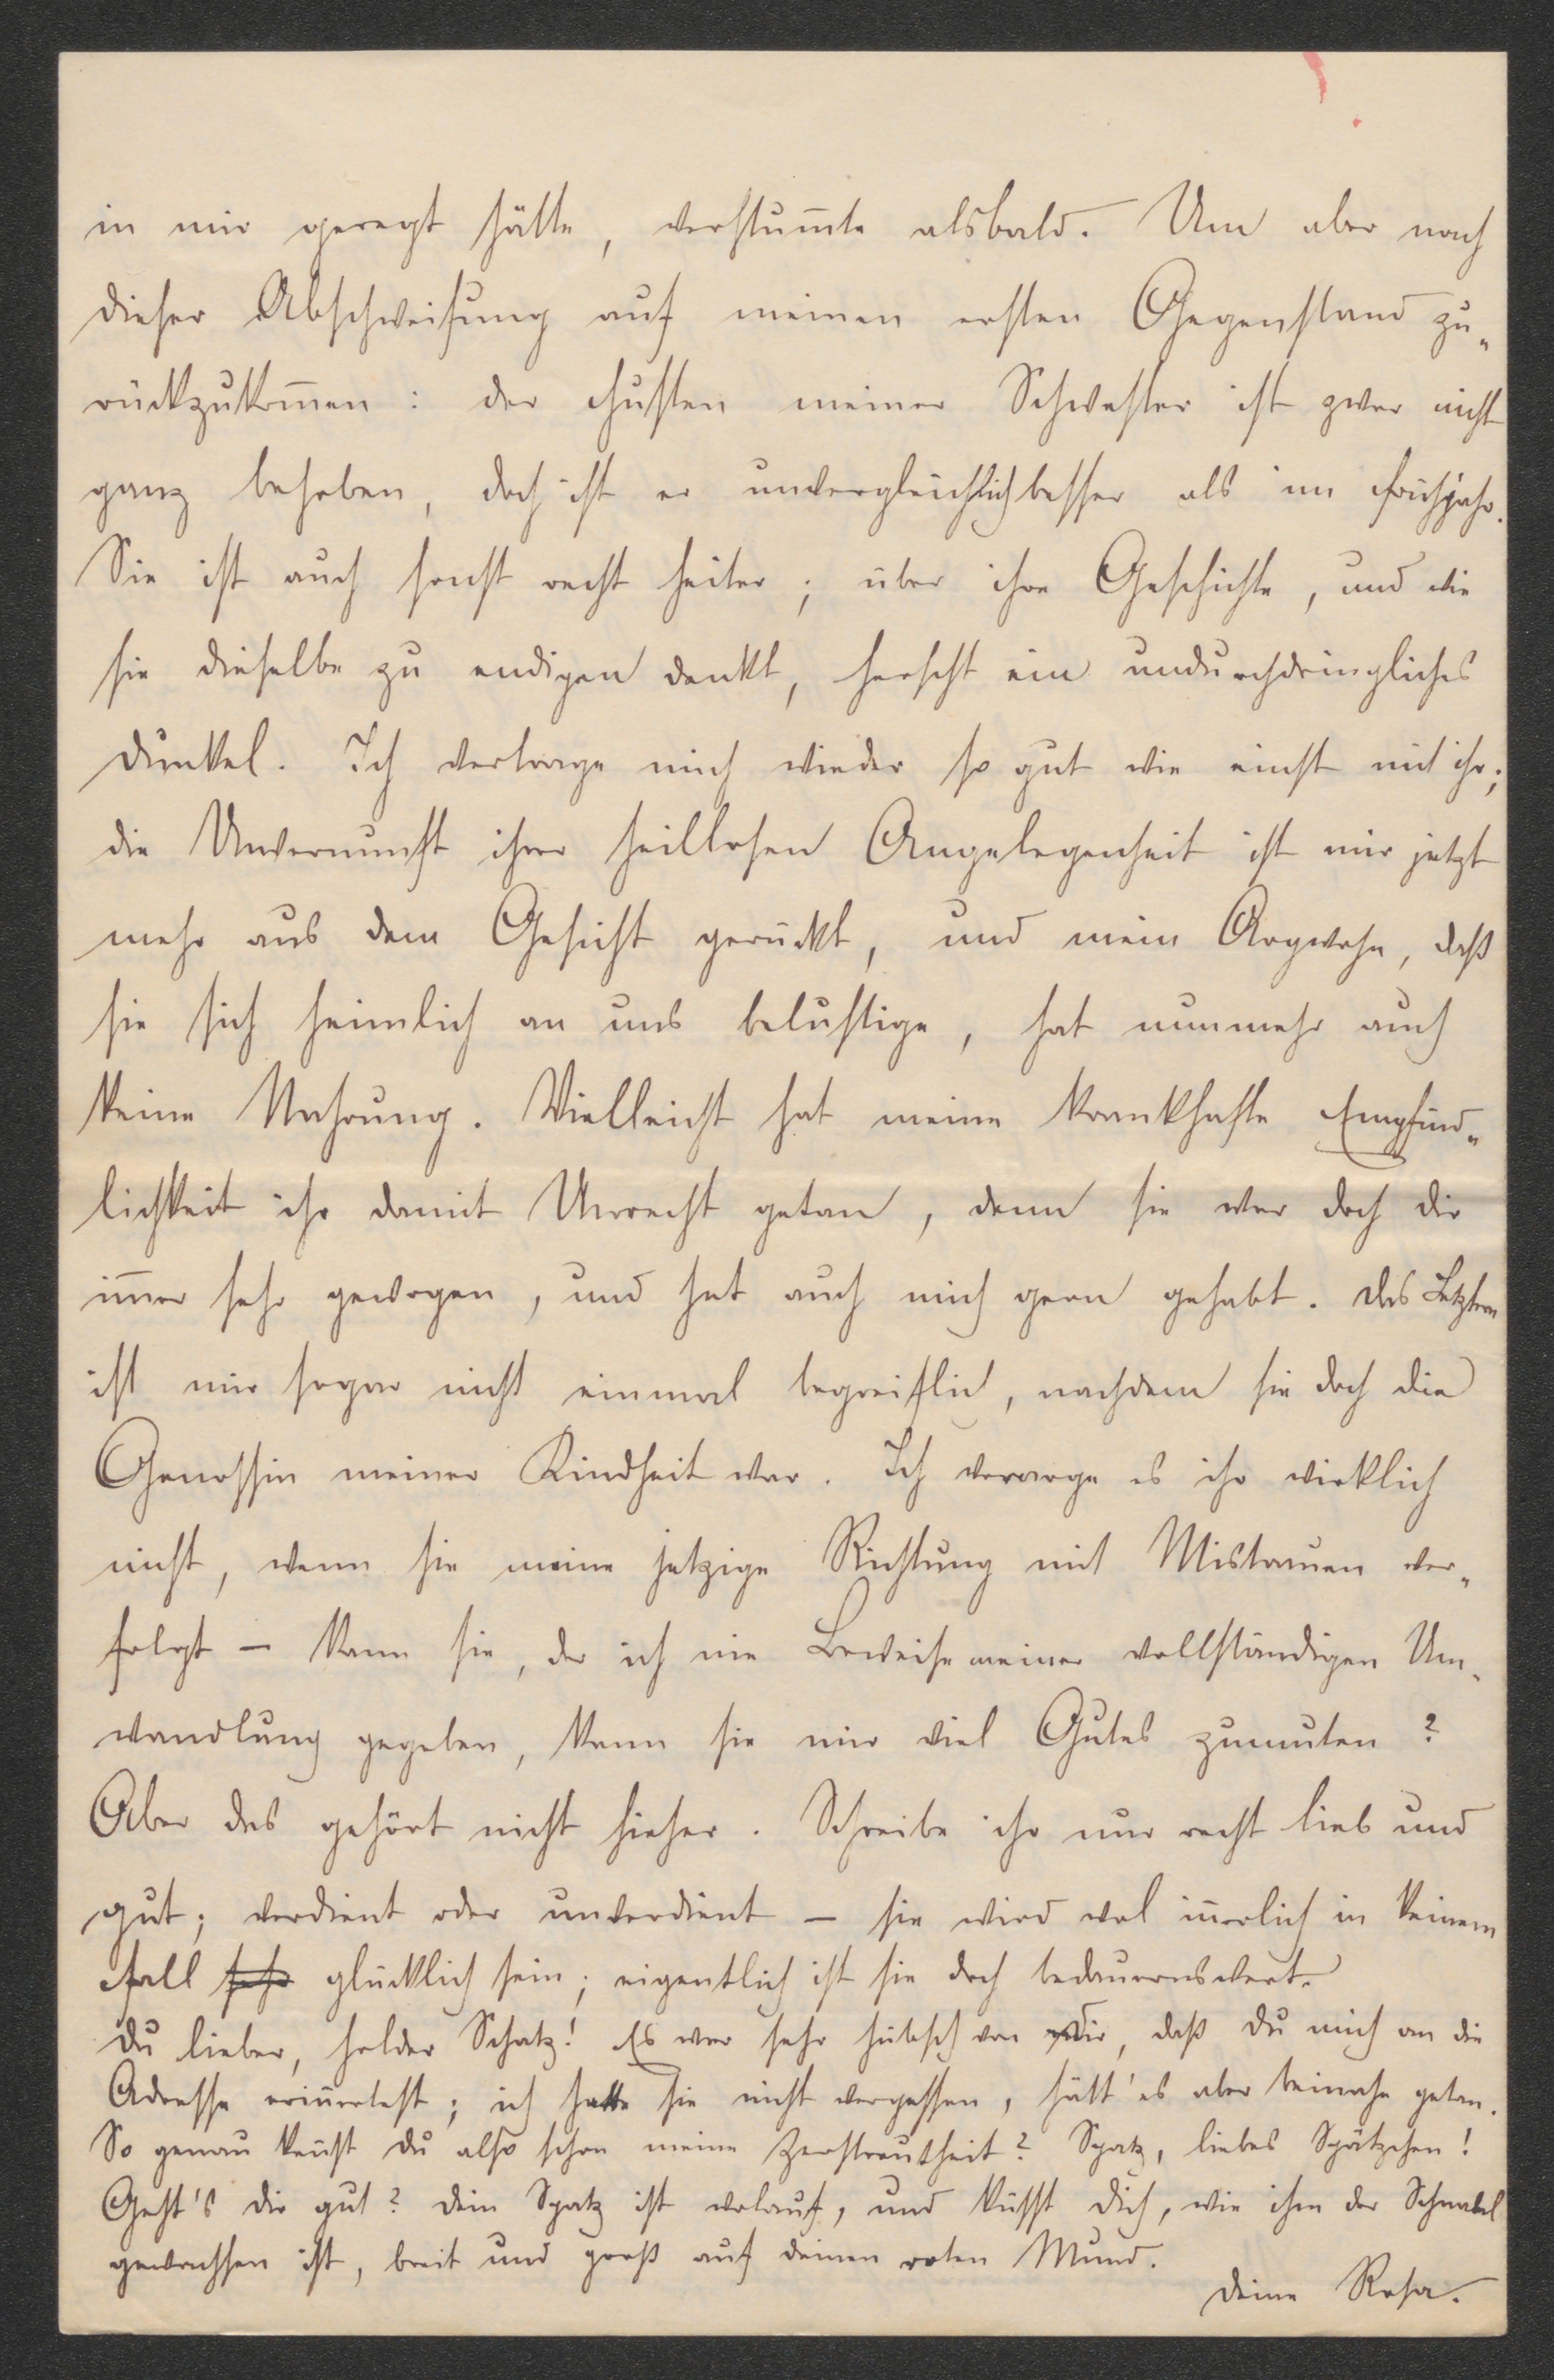 in mir geregt hätte, verstum̄te alsbald. Um aber nach
dieser Abschweifung auf meinen ersten Gegenstand zu„
rückzukom̄en: der Husten meiner Schwester ist zwar nicht
ganz behoben, doch ist er unvergleichlich besser als im Frühjahr.
Sie ist auch sonst recht heiter; über ihre Geschichte, und wie
sie dieselbe zu endigen denkt, herscht ein undurchdringliches
Dunkel. Ich vertrage mich wieder so gut wie einst mit ihr;
die Unvernunft ihrer heillosen Angelegenheit ist mir jetzt
mehr aus dem Gesicht gerückt, und mein Argwohn, daß
sie sich heimlich an uns belustige, hat nunmehr auch
keine Nahrung. Vielleicht hat meine krankhafte Empfind„
lichkeit ihr damit Unrecht getan, denn sie war doch dir
im̄er sehr gewogen, und hat auch mich gern gehabt. Das Letztere
ist mir sogar nicht einmal begreiflich, nachdem sie doch die
Genossin meiner Kindheit war. Ich verarge es ihr wirklich
nicht, wenn sie meine jetzige Richtung mit Mistrauen ver„
folgt – kann sie, der ich nie Beweise meiner vollständigen Um„
wandlung gegeben, kann sie mir viel Gutes zumuten?
Aber das gehört nicht hieher. Schreibe ihr nur recht lieb und
gut; verdient oder unverdient – sie wird wol in̄erlich in keinem
Fall sehr glücklich sein; eigentlich ist sie doch bedauernswert.
Du lieber, holder Schatz! Es war sehr hübsch von dir, daß du mich an die
Adresse erin̄ertest; ich hatte sie nicht vergessen, hätt' es aber beinahe getan.
So genau ken̄st du also schon meine Zerstreutheit? Spatz, liebes Spätzchen!
Geht's dir gut? Dein Spatz ist wolauf, und küsst dich, wie ihm der Schnabel
gewachsen ist, breit und groß auf deinen roten Mund.
Deine Rosa.